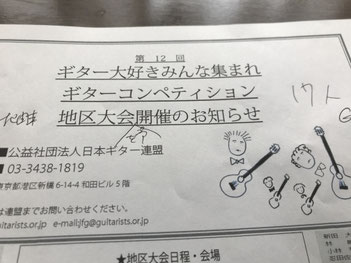 第 12 回
ギター大好きみんな集まれ
ギターコンペティション
地区大会開催のお知らせ
■公益社団法人日本ギター連盟
■ 03-3438-1819
東京都港区新橋 6-14-4 和田ビル 5 階
は連盟までお問い合わせください。
uitarists.or.jp e-mail:jfg@guitarists.or.jp
★地区大会日程・会場